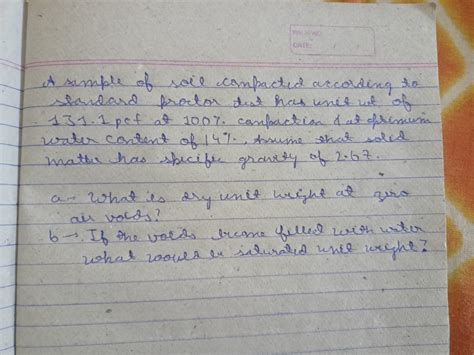 PAGE NO.:
DATE:
A sample of soil compacted according to
standard proctor test has unit wt of
131.1 pcf at 100% compaction & at optimum
water content of 14%. Assume that solid
matter has specific gravity of 2.67.
a → What is dry unit weight at zero
air voids?
b → If the voids become filled with water
what would be saturated unit weight?